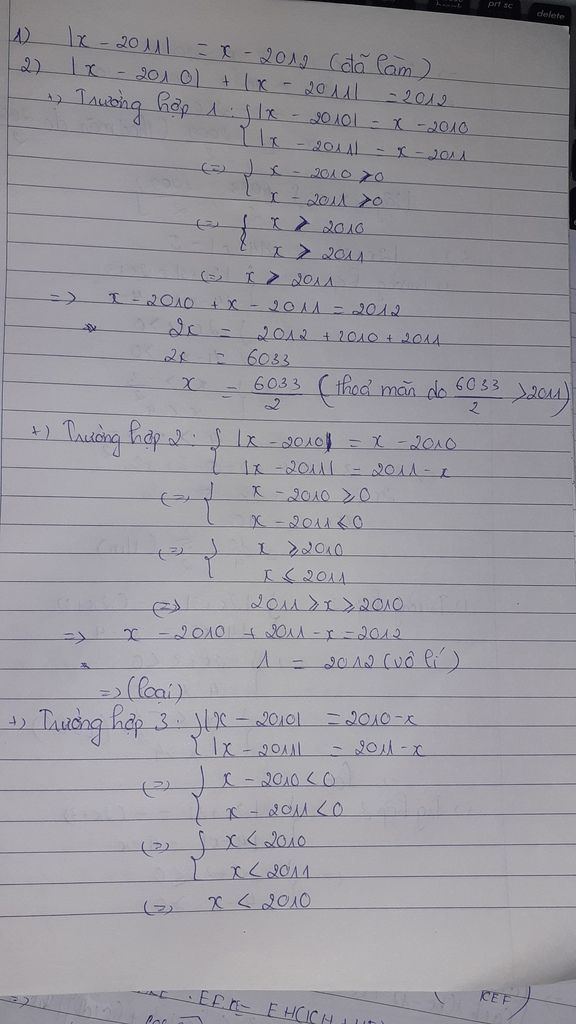 prt sc
delete
1) |x - 2011| = x - 2012 (đã làm)
2) |x - 2010| + |x - 2011| = 2012
+) Trường hợp 1: { |x - 2010| = x - 2010
|x - 2011| = x - 2011
(=) { x - 2010 ≥ 0
x - 2011 ≥ 0
(=) { x ≥ 2010
x ≥ 2011
(=) x ≥ 2011
=> x - 2010 + x - 2011 = 2012
2x = 2012 + 2010 + 2011
2x = 6033
x = 6033/2 (thoả mãn do 6033/2 > 2011)
+) Trường hợp 2: { |x - 2010| = x - 2010
|x - 2011| = 2011 - x
(=) { x - 2010 ≥ 0
x - 2011 ≤ 0
(=) { x ≥ 2010
x ≤ 2011
(=) 2011 ≥ x ≥ 2010
=> x - 2010 + 2011 - x = 2012
1 = 2012 (vô lí)
=> (loại)
+) Trường hợp 3: { |x - 2010| = 2010 - x
|x - 2011| = 2011 - x
(=) { x - 2010 < 0
x - 2011 < 0
(=) { x < 2010
x < 2011
(=) x < 2010
KEF